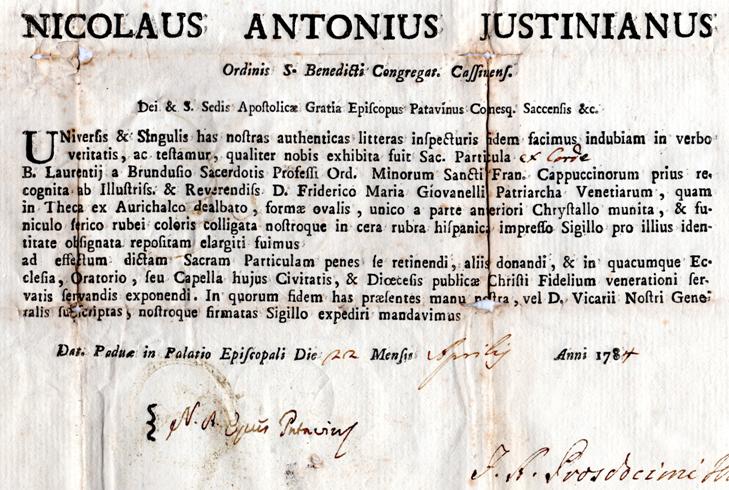 NICOLAUS ANTONIUS JUSTINIANUS
Ordinis S. Benedicti Congregat. Cassinens.
Dei & S. Sedis Apostolicæ Gratia Episcopus Patavinus Comesq. Saccensis &c.
UNiversis & Singulis has nostras authenticas litteras inspecturis fidem facimus indubiam in verbo
veritatis, ac testamur, qualiter nobis exhibita fuit Sac. Particula ex Corde
B. Laurentij a Brundusio Sacerdotis Professi Ord. Minorum Sancti Fran. Cappuccinorum prius re-
cognita ab Illustriss. & Reverendiss. D. Friderico Maria Giovanelli Patriarcha Venetiarum, quam
in Theca ex Aurichalco dealbato, formæ ovalis, unico a parte anteriori Chrystallo munita, & fu-
niculo serico rubei coloris colligata nostroque in cera rubra hispanica impresso Sigillo pro illius iden-
titate obsignata repositam elargiti fuimus
ad effectum dictam Sacram Particulam penes se retinendi, aliis donandi, & in quacumque Ec-
clesia, Oratorio, seu Capella hujus Civitatis, & Diœcesis publicæ Christi Fidelium venerationi ser-
vatis servandis exponendi. In quorum fidem has præsentes manu nostra, vel D. Vicarii Nostri Gene-
ralis subscriptas, nostroque firmatas Sigillo expediri mandavimus
Dat. Paduæ in Palatio Episcopali Die 22 Mensis Aprilis Anni 1784
N. A. Epus Patavinus
J. A. Prosdocimi